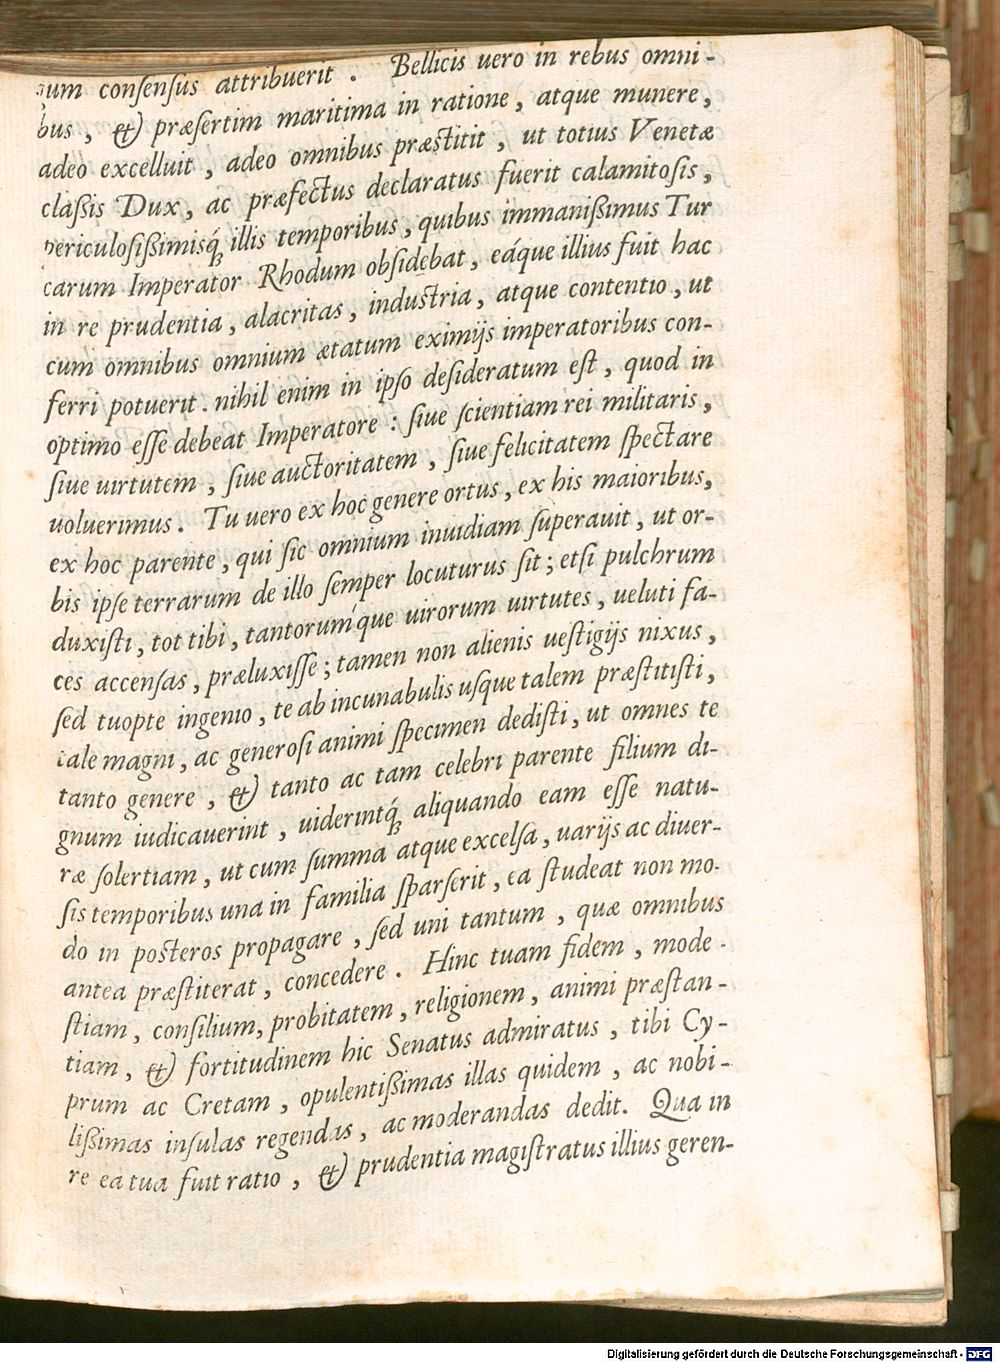 ium consensus attribuerit . Bellicis uero in rebus omni-
bus , & præsertim maritima in ratione , atque munere ,
adeo excelluit , adeo omnibus præstitit , ut totius Venetæ
claßis Dux , ac præfectus declaratus fuerit calamitosis ,
periculosißimisq́; illis temporibus , quibus immanißimus Tur
carum Imperator Rhodum obsidebat , eáque illius fuit hac
in re prudentia , alacritas , industria , atque contentio , ut
cum omnibus omnium ætatum eximijs imperatoribus con-
ferri potuerit . nihil enim in ipso desideratum est , quod in
optimo esse debeat Imperatore : siue scientiam rei militaris ,
siue uirtutem , siue auctoritatem , siue felicitatem spectare
uoluerimus . Tu uero ex hoc genere ortus , ex his maioribus,
ex hoc parente , qui sic omnium inuidiam superauit , ut or-
bis ipse terrarum de illo semper locuturus sit ; etsi pulchrum
duxisti , tot tibi , tantoruḿque uirorum uirtutes , ueluti fa-
ces accensas , præluxisse ; tamen non alienis uestigijs nixus ,
sed tuopte ingenio , te ab incunabulis usque talem præstitisti ,
tale magni , ac generosi animi specimen dedisti , ut omnes te
tanto genere , & tanto ac tam celebri parente filium di-
gnum iudicauerint , uiderintq́; aliquando eam esse natu-
ræ solertiam , ut cum summa atque excelsa , uarijs ac diuer-
sis temporibus una in familia sparserit , ea studeat non mo-
do in posteros propagare , sed uni tantum , quæ omnibus
antea præstiterat , concedere . Hinc tuam fidem , mode-
stiam , consilium, probitatem , religionem , animi præstan-
tiam , & fortitudinem hic Senatus admiratus , tibi Cy-
prum ac Cretam , opulentißimas illas quidem , ac nobi-
lißimas insulas regendas , ac moderandas dedit. Qua in
re ea tua fuit ratio , & prudentia magistratus illius geren-
Digitalisierung gefördert durch die Deutsche Forschungsgemeinschaft - DFG